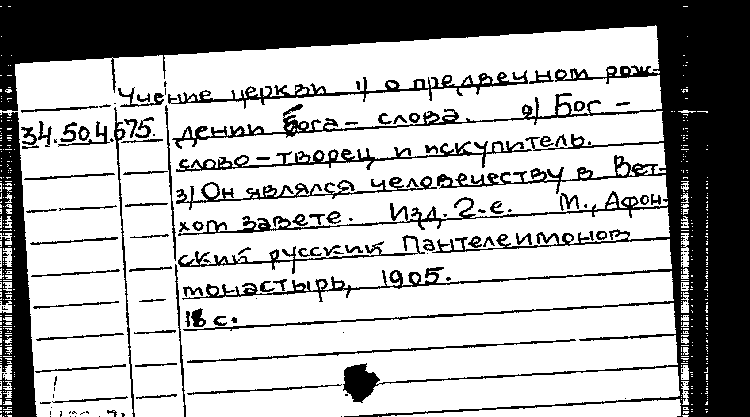 Учение церкви 1) о предвечном рож-
34.50.4.675. дении Бога - слова. 2) Бог -
слово - творец и искупитель.
3) Он являлся человечеству в Вет-
хом завете. Изд. 2-е. М., Афон-
ский русский Пантелеимонов
монастырь, 1905.
с.